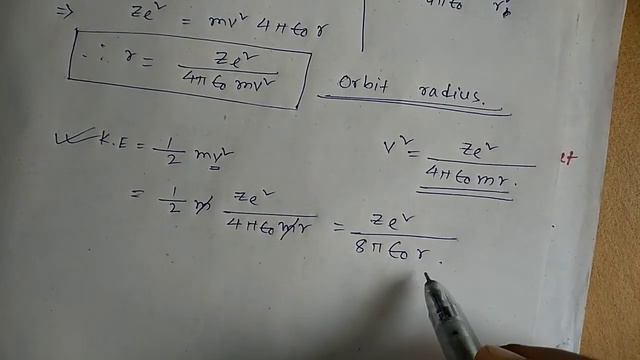 ⇒ Ze² = mv² 4π ε₀ r
4π ε₀ r
∴ r = Ze² / 4π ε₀ mv²
Orbit radius.
K.E = 1/2 mv²
v² = Ze² / 4π ε₀ mr.
= 1/2 m Ze² / 4π ε₀ mr = Ze² / 8π ε₀ r.